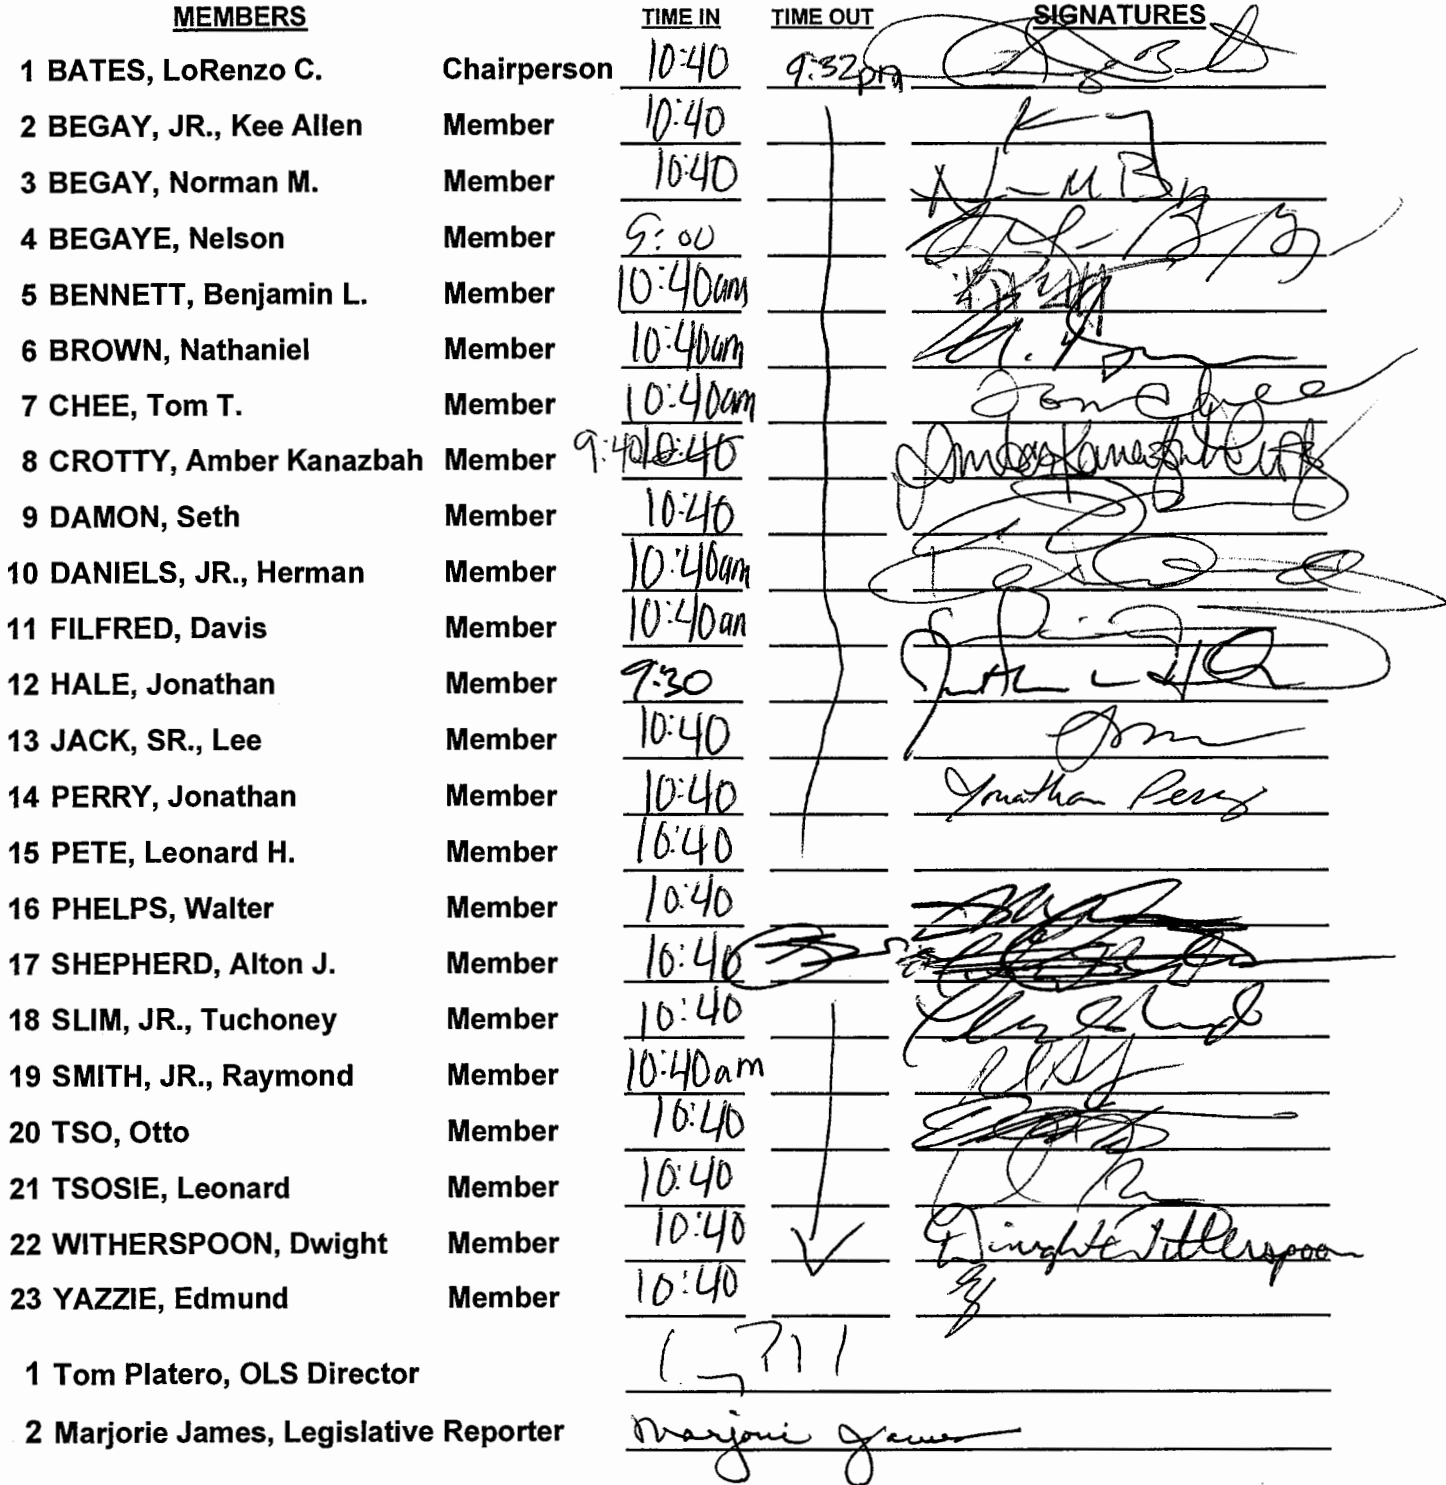 MEMBERS TIME IN TIME OUT SIGNATURES
1 BATES, LoRenzo C. Chairperson 10:40 9:32pm
2 BEGAY, JR., Kee Allen Member 10:40
3 BEGAY, Norman M. Member 10:40
4 BEGAYE, Nelson Member 9:00
5 BENNETT, Benjamin L. Member 10:40am
6 BROWN, Nathaniel Member 10:40am
7 CHEE, Tom T. Member 10:40am Tom Chee
8 CROTTY, Amber Kanazbah Member 9:40 10:40 Amber Kanazbah Crotty
9 DAMON, Seth Member 10:40
10 DANIELS, JR., Herman Member 10:40am
11 FILFRED, Davis Member 10:40am
12 HALE, Jonathan Member 9:30
13 JACK, SR., Lee Member 10:40
14 PERRY, Jonathan Member 10:40 Jonathan Perry
15 PETE, Leonard H. Member 10:40
16 PHELPS, Walter Member 10:40
17 SHEPHERD, Alton J. Member 10:40
18 SLIM, JR., Tuchoney Member 10:40
19 SMITH, JR., Raymond Member 10:40am
20 TSO, Otto Member 10:40
21 TSOSIE, Leonard Member 10:40
22 WITHERSPOON, Dwight Member 10:40 Dwight Witherspoon
23 YAZZIE, Edmund Member 10:40
1 Tom Platero, OLS Director
2 Marjorie James, Legislative Reporter Marjorie James